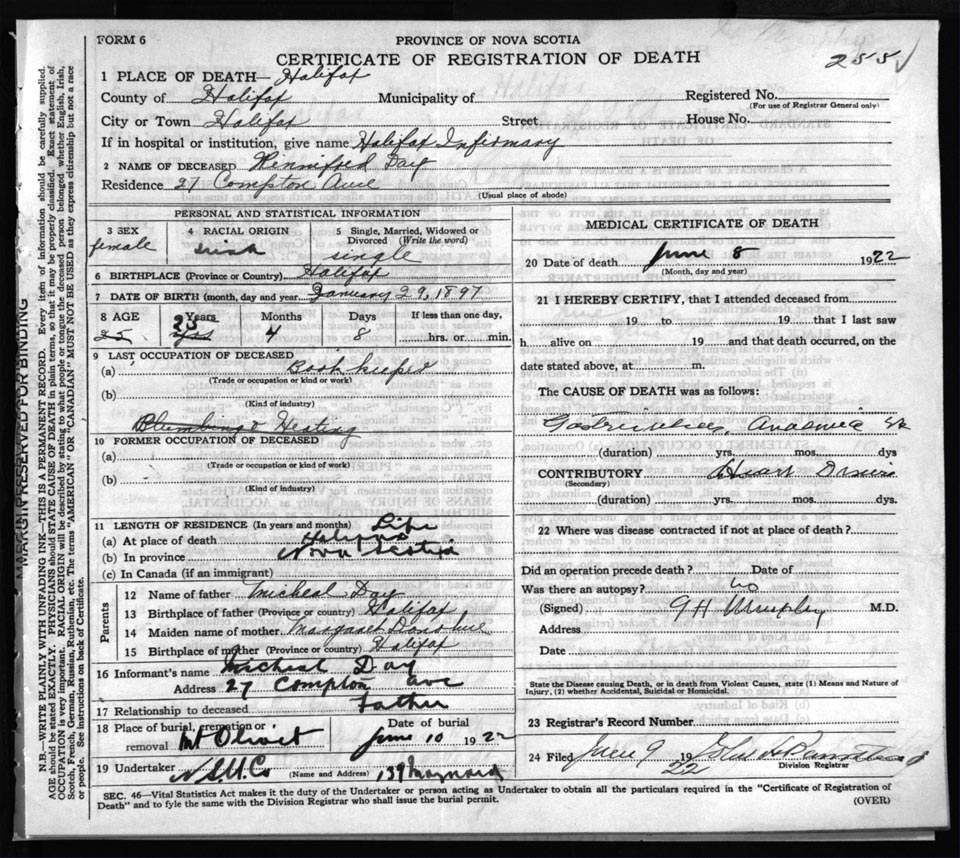 FORM 6
PROVINCE OF NOVA SCOTIA
CERTIFICATE OF REGISTRATION OF DEATH
255
1 PLACE OF DEATH— Halifax
County of Halifax Municipality of Registered No.
(For use of Registrar General only)
City or Town Halifax Street House No.
If in hospital or institution, give name Halifax Infirmary
2 NAME OF DECEASED Winnifred Day
Residence 27 Compton Ave
(Usual place of abode)
PERSONAL AND STATISTICAL INFORMATION
3 SEX 4 RACIAL ORIGIN 5 Single, Married, Widowed or
Divorced (Write the word)
female Irish single
6 BIRTHPLACE (Province or Country) Halifax
7 DATE OF BIRTH (month, day and year January 29, 1897
8 AGE Years Months Days If less than one day,
25 25 4 8 hrs. or min.
9 LAST OCCUPATION OF DECEASED
(a) Book keeper
(Trade or occupation or kind of work)
(b)
(Kind of industry)
Plumbing & Heating
10 FORMER OCCUPATION OF DECEASED
(a)
(Trade or occupation or kind of work)
(b)
(Kind of industry)
11 LENGTH OF RESIDENCE (In years and months) Life
(a) At place of death Halifax
(b) In province Nova Scotia
(c) In Canada (if an immigrant)
Parents
12 Name of father Micheal Day
13 Birthplace of father (Province or country) Halifax
14 Maiden name of mother Margaret Donohue
15 Birthplace of mother (Province or country) Halifax
16 Informant's name Micheal Day
Address 27 Compton ave
17 Relationship to deceased Father
18 Place of burial, cremation or Date of burial
removal Mt Olivet June 10 1922
19 Undertaker N.S.U.Co (Name and Address) 139 Maynard
MEDICAL CERTIFICATE OF DEATH
20 Date of death June 8 1922
(Month, day and year)
21 I HEREBY CERTIFY, that I attended deceased from
19 to 19 that I last saw
h alive on 19 and that death occurred, on the
date stated above, at m.
The CAUSE OF DEATH was as follows:
Anaemia
(duration) yrs. mos. dys.
CONTRIBUTORY Heart Disease
(Secondary)
(duration) yrs. mos. dys
22 Where was disease contracted if not at place of death?
Did an operation precede death? Date of
Was there an autopsy? no
(Signed) G H Murphy M.D.
Address
Date
State the Disease causing Death, or in death from Violent Causes, state (1) Means and Nature of
Injury, (2) whether Accidental, Suicidal or Homicidal.
23 Registrar's Record Number
24 Filed June 9 19 22 John
Division Registrar
SEC. 46—Vital Statistics Act makes it the duty of the Undertaker or person acting as Undertaker to obtain all the particulars required in the "Certificate of Registration of
Death" and to fyle the same with the Division Registrar who shall issue the burial permit. (OVER)
MARGIN RESERVED FOR BINDING
N.B.—WRITE PLAINLY WITH UNFADING INK—THIS IS A PERMANENT RECORD. Every item of information should be carefully supplied.
AGE should be stated EXACTLY. PHYSICIANS should STATE CAUSE OF DEATH in plain terms, so that it may be properly classified. Exact statement of
OCCUPATION is very important. RACIAL ORIGIN will be described by stating to what people or tongue the deceased person belonged whether English, Irish,
Scotch, French, German, Russian, Ruthenian, etc. The terms "AMERICAN" OR "CANADIAN" MUST NOT BE USED as they express citizenship but not a race
or people. See instructions on back of Certificate.